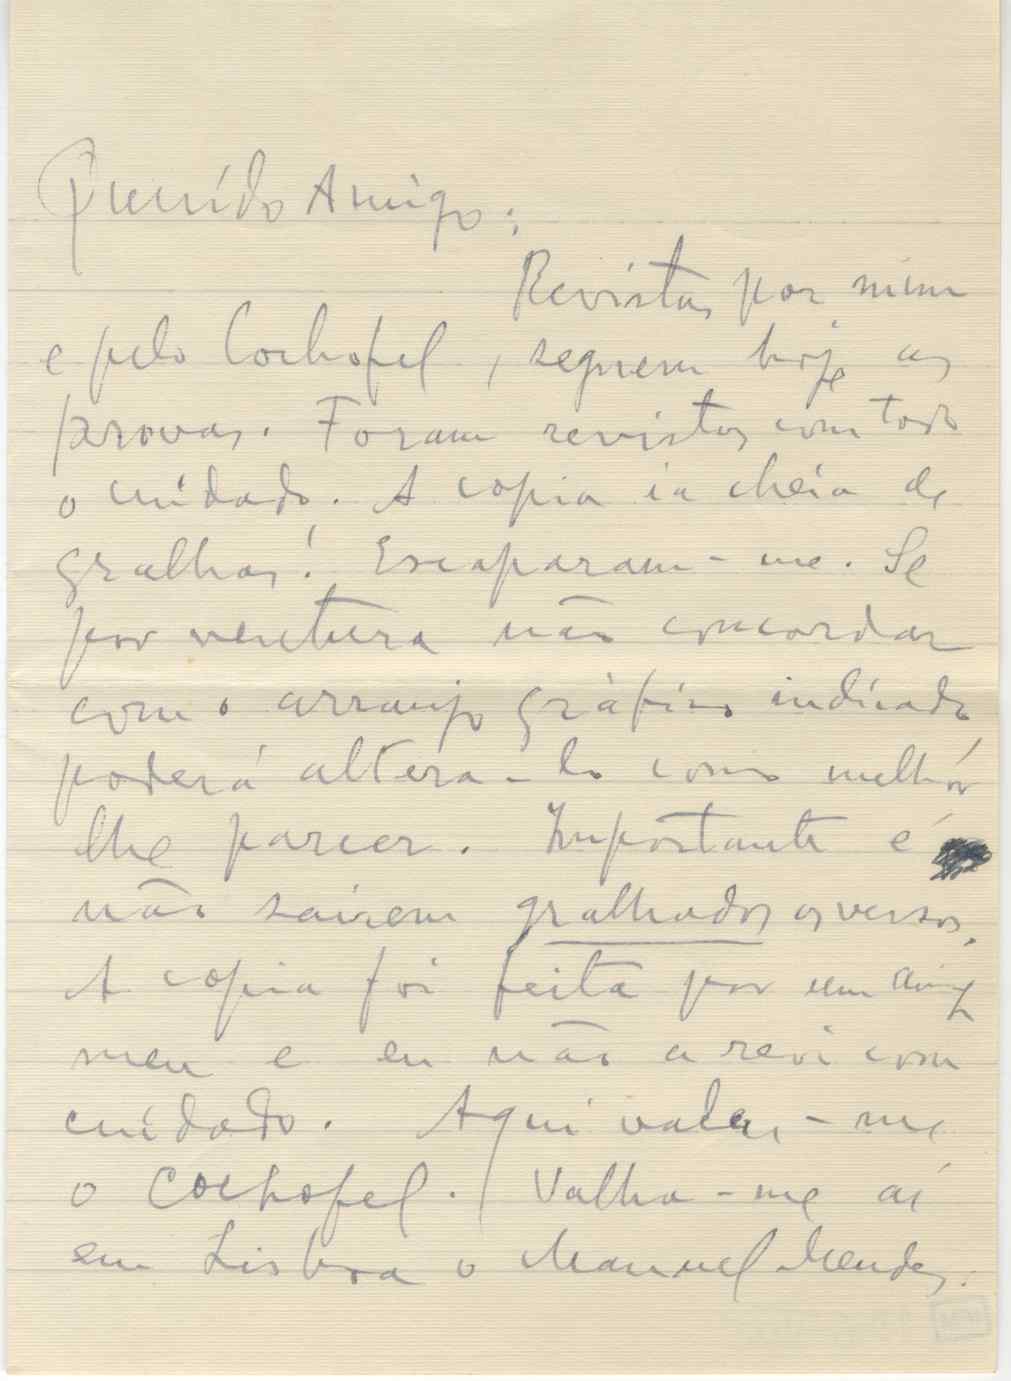 Querido Amigo:
Revistas por mim
e pelo Cochofel, seguem hoje as
provas. Foram revistas com todo
o cuidado. A copia ia cheia de
gralhas! Escaparam-me. Se
por ventura não concordar
com o arranjo gráfico indicado
poderá altera-lo como melhór
lhe parecer. Importante é
não sairem gralhados os versos.
A copia foi feita por um amigo
meu e eu não a revi com
cuidado. Aqui valeu-me
o Cochofel. Valha-me aí
em Lisboa o Manuel Mendes.